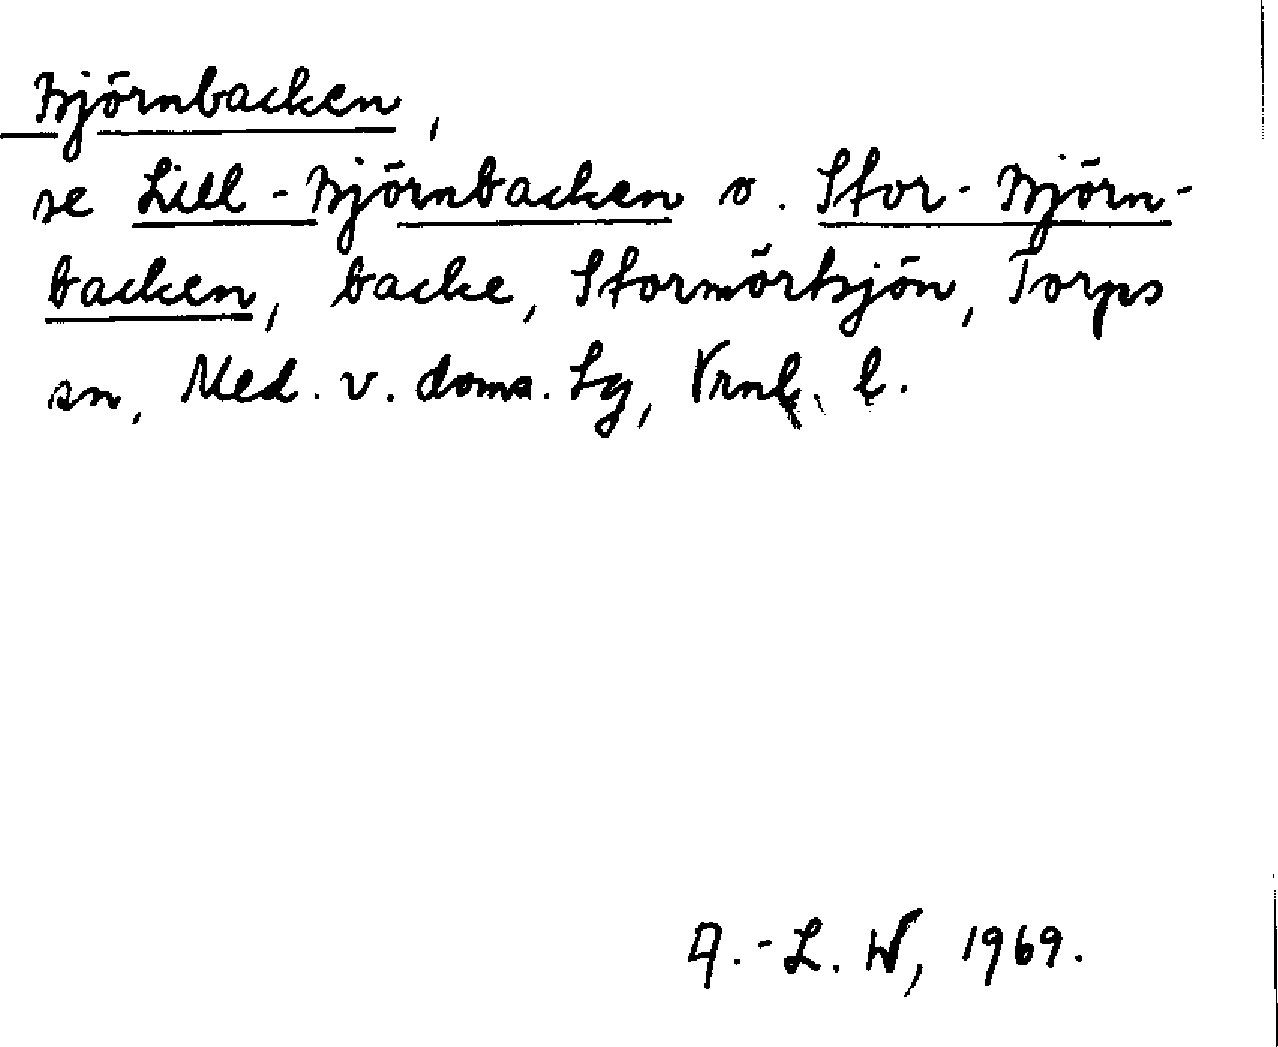 Björnbacken,
se Lill-Björnbacken o. Stor-Björn-
backen, backe, Stormörtsjön, Torps
sn, Med. v. doms. Lg, Vrnl. l.
A.-L. W, 1969.